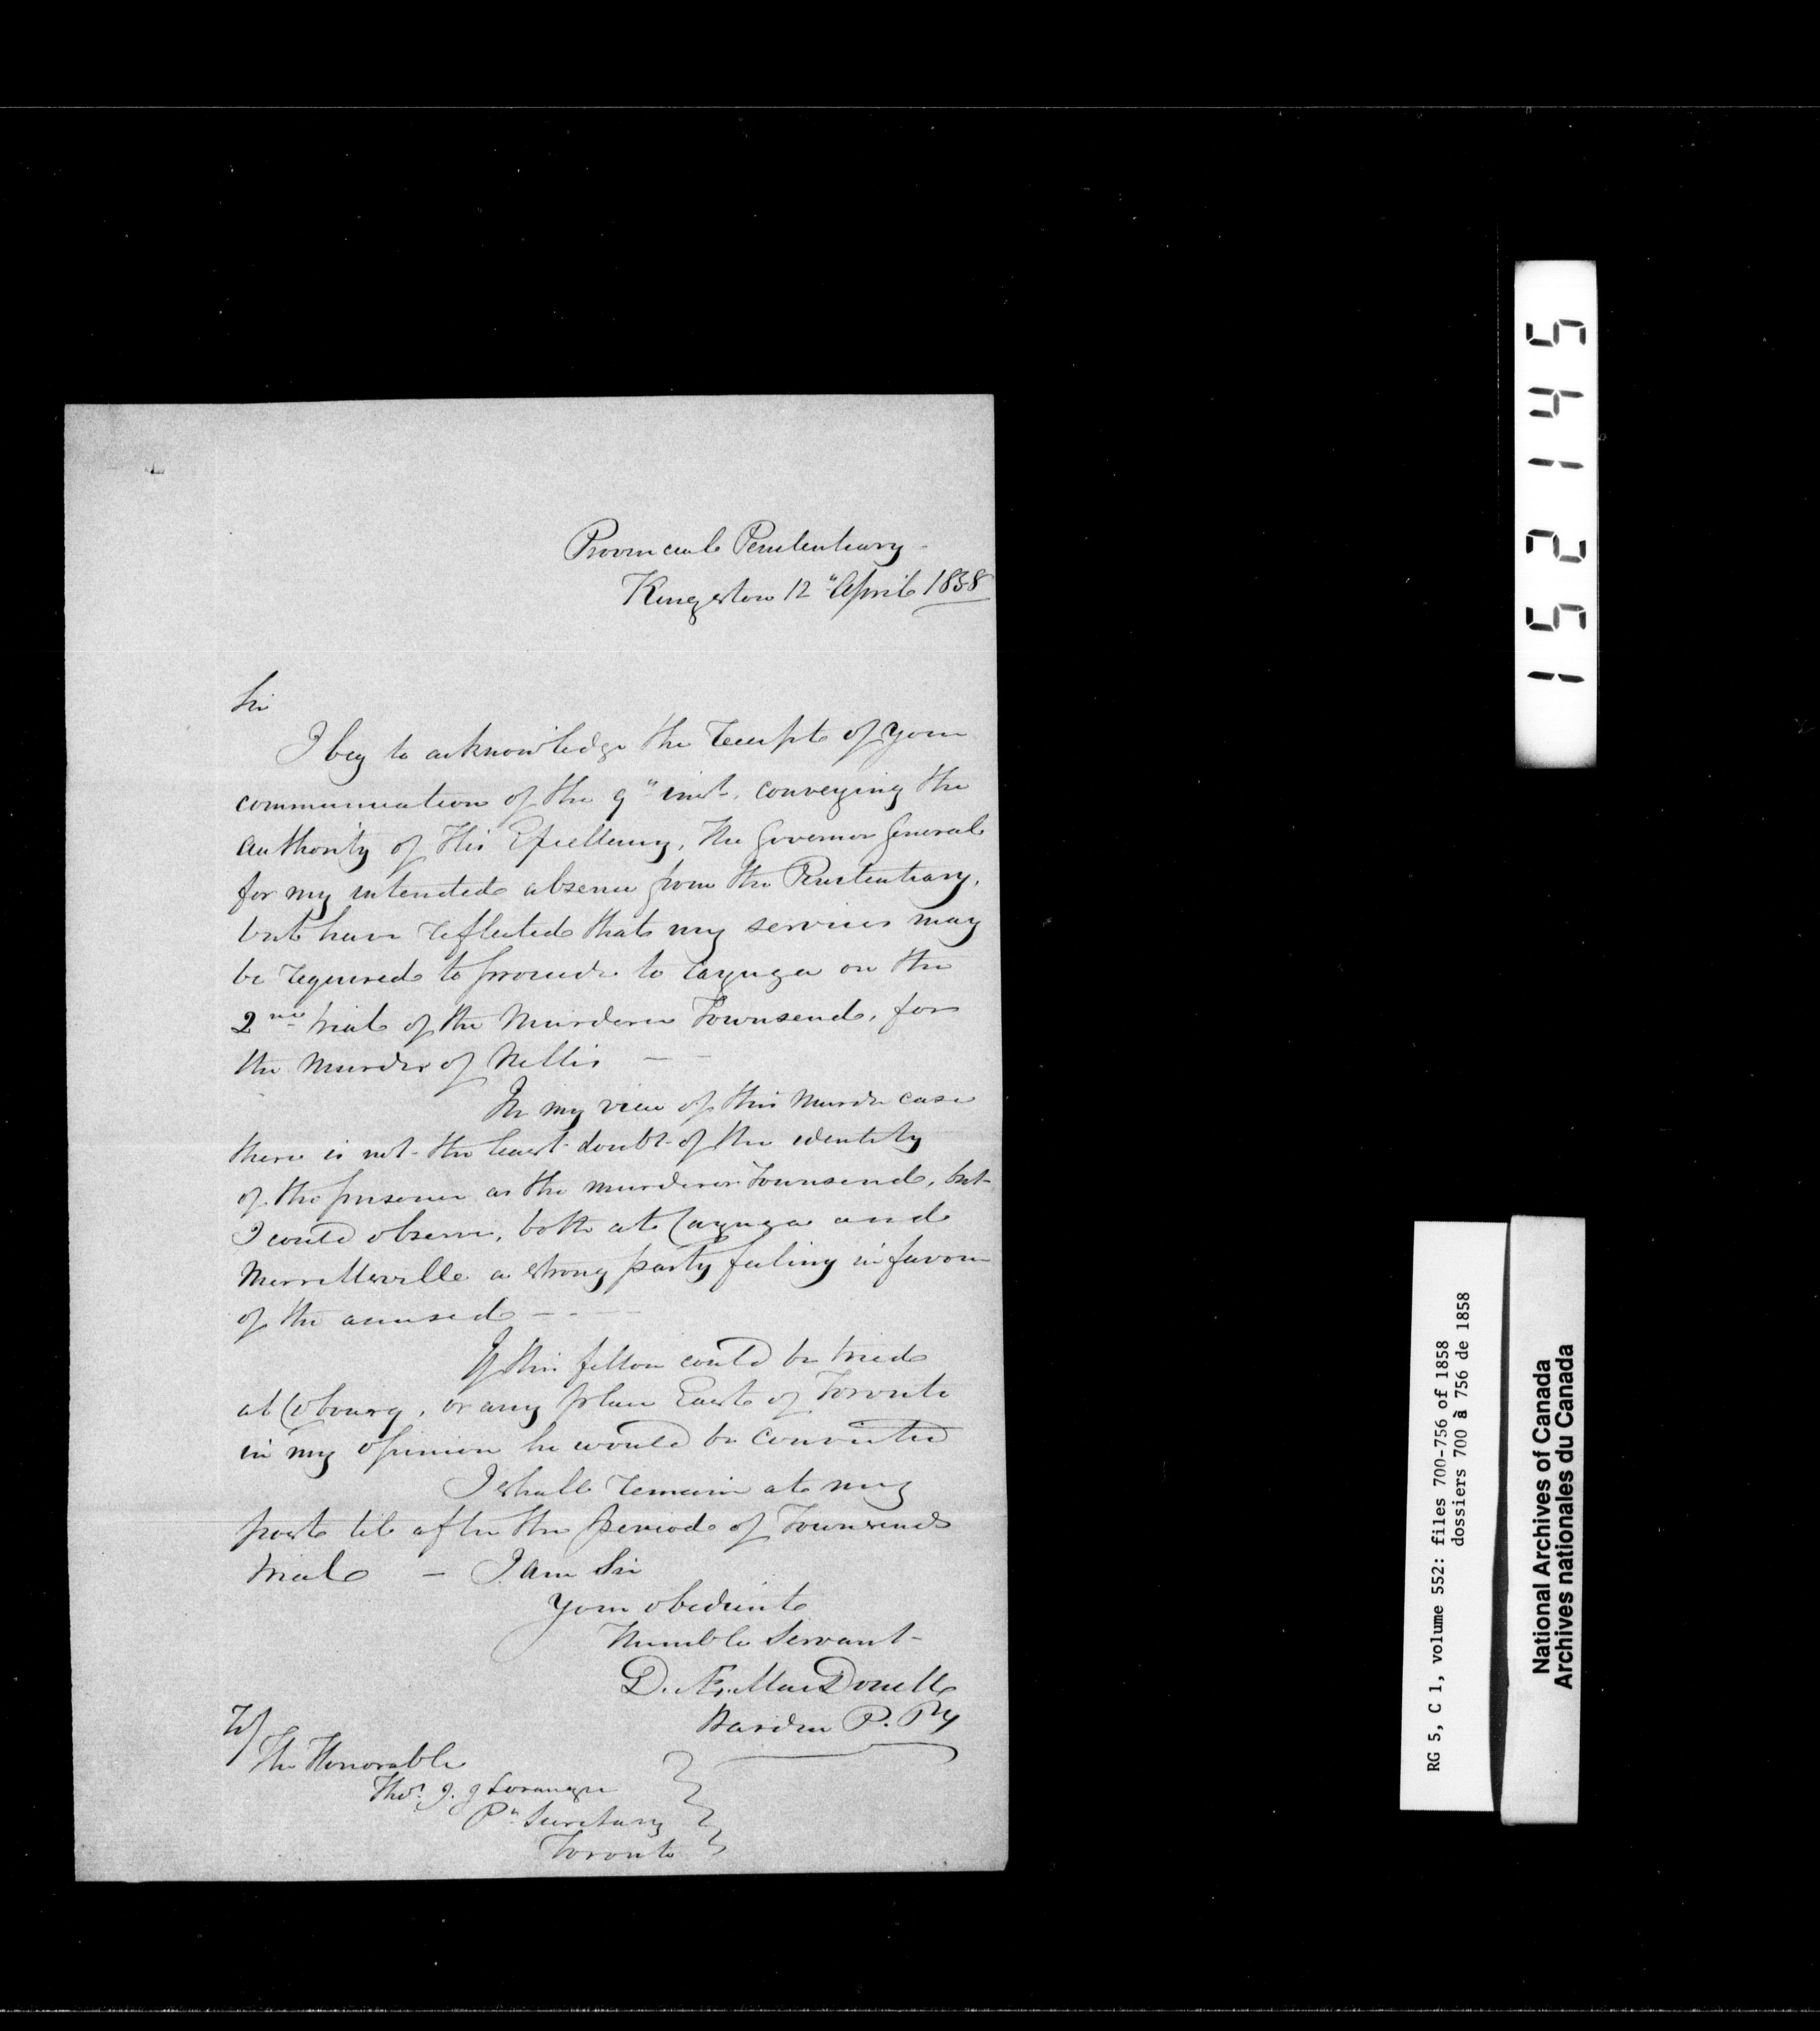 Provincial Penitentiary
Kingston 12" April 1858
Sir
I beg to acknowledge the receipt of your
communication of the 9" inst. conveying the
authority of His Excellency, the Governor General
for my intended absence from the Penitentiary,
but have reflected that my services may
be required to proceed to Cayuga on the
2nd trial of the Murderer Townsend, for
the Murder of Nellis —
In my view of this Murder case
there is not the least doubt of the identity
of the prisoner as the murderer Townsend, but
I could observe, both at Cayuga and
Merrittsville a strong party feeling in favour
of the accused — - —
If this fellow could be tried
at Cobourg, or any place East of Toronto
in my opinion he would be convicted
I shall remain at my
post til after the period of Townsends
trial — I am Sir
Your obedient
Humble Servant
D. Æ. MacDonell
Warden P. Py
To/
The Honorable
Thos. J. J. Loranger
Pl. Secretary
Toronto
152145
RG 5, C 1, volume 552: files 700-756 of 1858
dossiers 700 à 756 de 1858
National Archives of Canada
Archives nationales du Canada